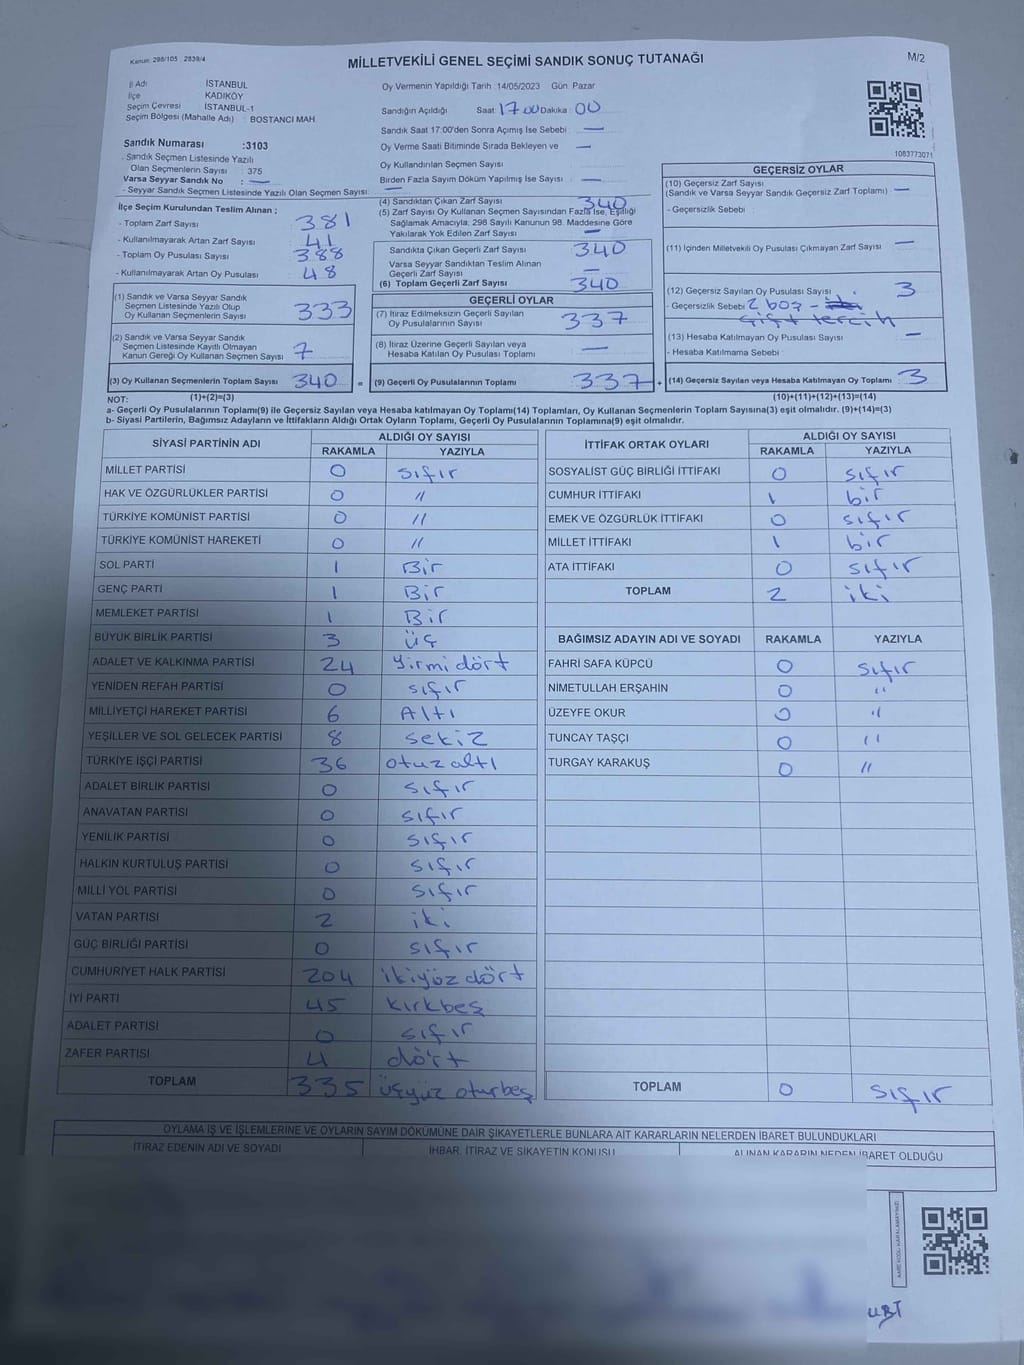 Kanun: 298/105 2839/4
MİLLETVEKİLİ GENEL SEÇİMİ SANDIK SONUÇ TUTANAĞI
M/2
İl Adı İSTANBUL
İlçe KADIKÖY
Seçim Çevresi İSTANBUL-1
Seçim Bölgesi (Mahalle Adı) : BOSTANCI MAH.
Sandık Numarası :3103
- Sandık Seçmen Listesinde Yazılı
Olan Seçmenlerin Sayısı : 375
Varsa Seyyar Sandık No : —
- Seyyar Sandık Seçmen Listesinde Yazılı Olan Seçmen Sayısı: —
Oy Vermenin Yapıldığı Tarih :14/05/2023 Gün: Pazar
Sandığın Açıldığı Saat: 17 00 Dakika : 00
Sandık Saat 17:00'den Sonra Açımış İse Sebebi : —
Oy Verme Saati Bitiminde Sırada Bekleyen ve —
Oy Kullandırılan Seçmen Sayısı
Birden Fazla Sayım Döküm Yapılmış İse Sayısı : —
1083773071
İlçe Seçim Kurulundan Teslim Alınan ;
- Toplam Zarf Sayısı 381
- Kullanılmayarak Artan Zarf Sayısı 41
- Toplam Oy Pusulası Sayısı 388
- Kullanılmayarak Artan Oy Pusulası 48
(1) Sandık ve Varsa Seyyar Sandık
Seçmen Listesinde Yazılı Olup
Oy Kullanan Seçmenlerin Sayısı 333
(2) Sandık ve Varsa Seyyar Sandık
Seçmen Listesinde Kayıtlı Olmayan
Kanun Gereği Oy Kullanan Seçmen Sayısı 7
(3) Oy Kullanan Seçmenlerin Toplam Sayısı 340 =
(1)+(2)=(3)
(4) Sandıktan Çıkan Zarf Sayısı 340
(5) Zarf Sayısı Oy Kullanan Seçmen Sayısından Fazla İse, Eşitliği
Sağlamak Amacıyla, 298 Sayılı Kanunun 98. Maddesine Göre
Yakılarak Yok Edilen Zarf Sayısı —
Sandıkta Çıkan Geçerli Zarf Sayısı 340
Varsa Seyyar Sandıktan Teslim Alınan
Geçerli Zarf Sayısı —
(6) Toplam Geçerli Zarf Sayısı 340
GEÇERLİ OYLAR
(7) İtiraz Edilmeksizin Geçerli Sayılan
Oy Pusulalarının Sayısı 337
(8) İtiraz Üzerine Geçerli Sayılan veya
Hesaba Katılan Oy Pusulası Toplamı —
(9) Geçerli Oy Pusulalarının Toplamı 337 +
GEÇERSİZ OYLAR
(10) Geçersiz Zarf Sayısı
(Sandık ve Varsa Seyyar Sandık Geçersiz Zarf Toplamı) —
- Geçersizlik Sebebi :
(11) İçinden Milletvekili Oy Pusulası Çıkmayan Zarf Sayısı —
(12) Geçersiz Sayılan Oy Pusulası Sayısı : 3
- Geçersizlik Sebebi 2 boş -
çift tercih
(13) Hesaba Katılmayan Oy Pusulası Sayısı —
- Hesaba Katılmama Sebebi
(14) Geçersiz Sayılan veya Hesaba Katılmayan Oy Toplamı 3
(10)+(11)+(12)+(13)=(14)
NOT:
a- Geçerli Oy Pusulalarının Toplamı(9) ile Geçersiz Sayılan veya Hesaba katılmayan Oy Toplamı(14) Toplamları, Oy Kullanan Seçmenlerin Toplam Sayısına(3) eşit olmalıdır. (9)+(14)=(3)
b- Siyasi Partilerin, Bağımsız Adayların ve İttifakların Aldığı Ortak Oyların Toplamı, Geçerli Oy Pusulalarının Toplamına(9) eşit olmalıdır.
SİYASİ PARTİNİN ADI ALDIĞI OY SAYISI
RAKAMLA YAZIYLA
MİLLET PARTİSİ 0 sıfır
HAK VE ÖZGÜRLÜKLER PARTİSİ 0 "
TÜRKİYE KOMÜNİST PARTİSİ 0 "
TÜRKİYE KOMÜNİST HAREKETİ 0 "
SOL PARTİ 1 Bir
GENÇ PARTİ 1 Bir
MEMLEKET PARTİSİ 1 Bir
BÜYÜK BİRLİK PARTİSİ 3 üç
ADALET VE KALKINMA PARTİSİ 24 Yirmidört
YENİDEN REFAH PARTİSİ 0 sıfır
MİLLİYETÇİ HAREKET PARTİSİ 6 Altı
YEŞİLLER VE SOL GELECEK PARTİSİ 8 sekiz
TÜRKİYE İŞÇİ PARTİSİ 36 otuzaltı
ADALET BİRLİK PARTİSİ 0 sıfır
ANAVATAN PARTİSİ 0 sıfır
YENİLİK PARTİSİ 0 sıfır
HALKIN KURTULUŞ PARTİSİ 0 sıfır
MİLLİ YOL PARTİSİ 0 sıfır
VATAN PARTİSİ 2 iki
GÜÇ BİRLİĞİ PARTİSİ 0 sıfır
CUMHURİYET HALK PARTİSİ 204 ikiyüzdört
İYİ PARTİ 45 kırkbeş
ADALET PARTİSİ 0 sıfır
ZAFER PARTİSİ 4 dört
TOPLAM 335 üçyüz oturbeş
İTTİFAK ORTAK OYLARI ALDIĞI OY SAYISI
RAKAMLA YAZIYLA
SOSYALİST GÜÇ BİRLİĞİ İTTİFAKI 0 sıfır
CUMHUR İTTİFAKI 1 bir
EMEK VE ÖZGÜRLÜK İTTİFAKI 0 sıfır
MİLLET İTTİFAKI 1 bir
ATA İTTİFAKI 0 sıfır
TOPLAM 2 iki
BAĞIMSIZ ADAYIN ADI VE SOYADI RAKAMLA YAZIYLA
FAHRİ SAFA KÜPCÜ 0 sıfır
NİMETULLAH ERŞAHİN 0 "
ÜZEYFE OKUR 0 "
TUNCAY TAŞÇI 0 "
TURGAY KARAKUŞ 0 "
TOPLAM 0 sıfır
OYLAMA İŞ VE İŞLEMLERİNE VE OYLARIN SAYIM DÖKÜMÜNE DAİR ŞİKAYETLERLE BUNLARA AİT KARARLARIN NELERDEN İBARET BULUNDUKLARI
İTİRAZ EDENİN ADI VE SOYADI İHBAR, İTİRAZ VE ŞİKAYETİN KONUSU ALINAN KARARIN NEDEN İBARET OLDUĞU